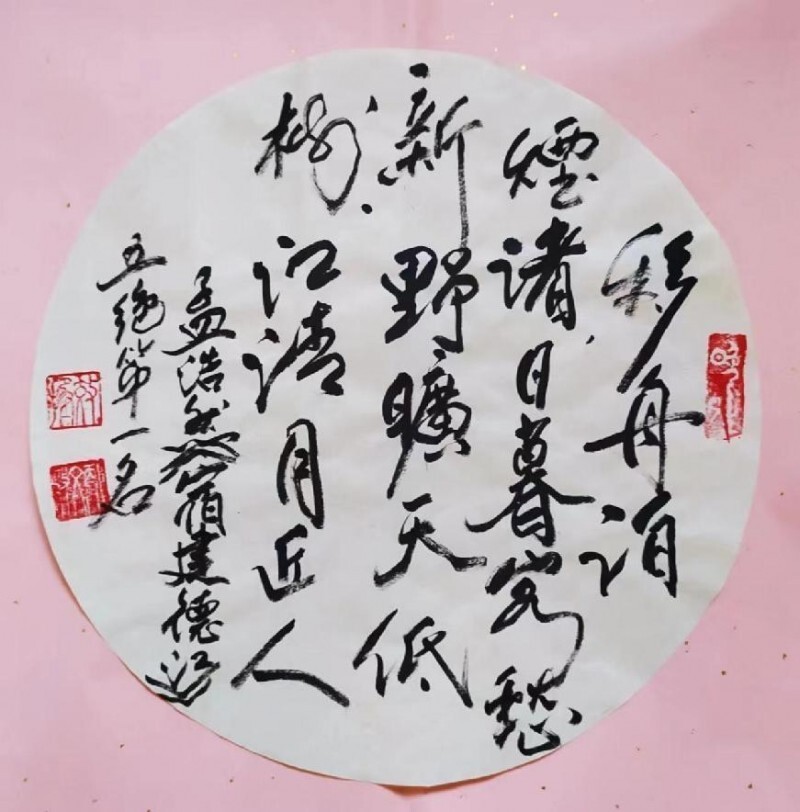 移舟泊
煙渚日暮客愁
新野曠天低
樹江清月近人
孟浩然宿建德江
五绝第一名